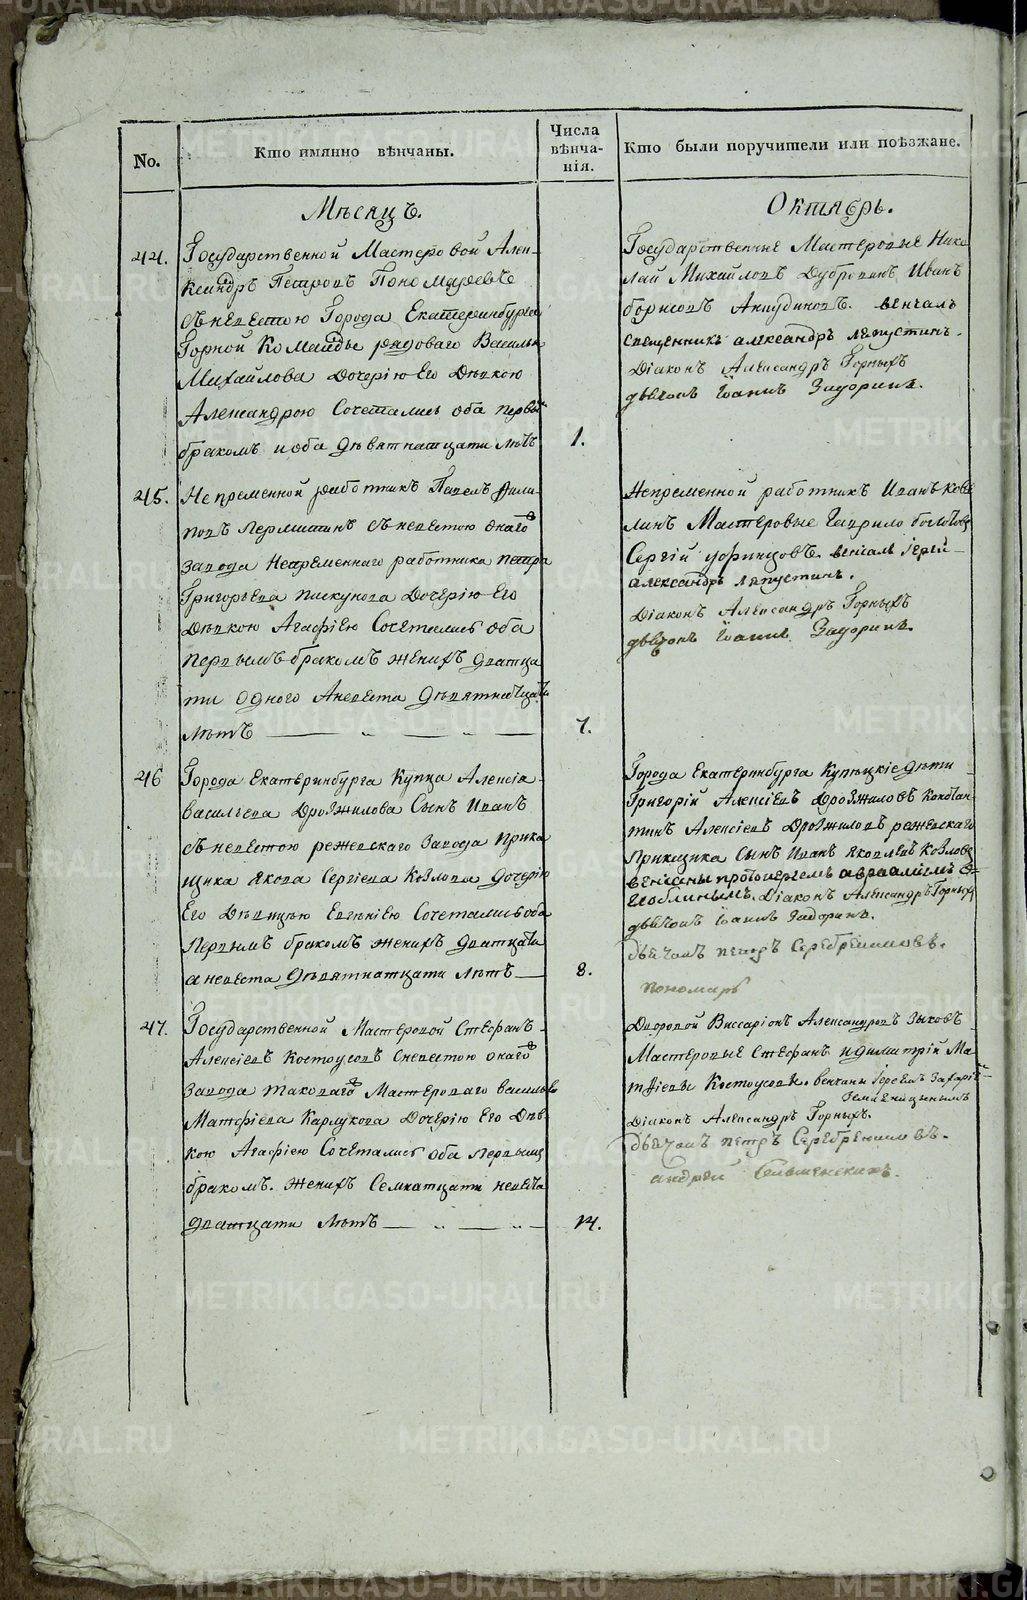 No.
Кто имянно вѣнчаны.
Числа
вѣнча-
нія.
Кто были поручители или поѣзжане.
Мѣсяцъ.
Октябрь.
44.
Государственной Мастеровой Алек-
ксандръ Петровъ Пономаревъ
съ невестою Города Екатеринбурга
Горной Команды рядоваго Василья
Михайлова Дочерію Его Дѣвкою
Александрою Сочетались оба первымъ
бракомъ и оба Девятнатцати лѣтъ
1.
Государственные Мастеровые Нико
лай Михайловъ Дубровинъ Иванъ
борисовъ Анкудиновъ. венчалъ
священникъ александръ лапустинъ.
Діаконъ Александръ Горныхъ
дьячокъ Іоаннъ Задоринъ.
45.
Непременной работникъ Павелъ Фили-
повъ съ невестою онаго
завода Непременнаго работника петра
Григорьева пискунова Дочерію Его
Дѣвкою Агафіею Сочетались оба
первымъ бракомъ женихъ дватца
ти одного Аневеста Девятнатцати
лѣтъ
7.
Непременной работникъ Иванъ Кове
линъ Мастеровые Гаврило
Сергій уфинцовъ. венчалъ Іерей
александръ лапустинъ.
Діаконъ Александръ Горныхъ
дьячокъ Іоаннъ Задоринъ.
46
Города Екатеринбурга Купца Алексія
васильева Дрозжилова Сынъ Иванъ
съ невестою режевскаго Завода Прика
щика Якова Сергіева Козлова Дочерію
Его Дѣвицею Евгеніею Сочетались оба
Первымъ бракомъ женихъ дватцати
а невеста Девятнатцати лѣтъ
8.
Города Екатеринбурга Купецкіе дѣти
Григорій Алексіевъ Дрозжиловъ Констан-
тинъ Алексіевъ Дрозжиловъ режевскаго
Прикащика Сынъ Иванъ Яковлевъ Козловъ
венчаны протоиереемъ авраамiемъ
Діаконъ Александръ Горныхъ
дьячокъ Іоаннъ Задоринъ.
дьячокъ петръ Серебренниковъ.
пономарь
47.
Государственной Мастеровой Стефанъ
Алексіевъ Костоусовъ Сневестою онаго
Завода таковаго Мастероваго василья
Матфіева Карлукова Дочерію Его Дѣв-
кою Агафіею Сочетались оба первымъ
бракомъ. женихъ Семнатцати невеста
дватцати лѣтъ
14.
Дворовой Виссаріонъ Александровъ Зыковъ
Мастеровые Стефанъ идимитрій Ма-
тфіевы Костоусовы. венчаны Іереемъ Захаріемъ
Діаконъ Александръ Горныхъ.
дьячокъ петръ Серебренниковъ.
андрей
METRIKI.GASO-URAL.RU